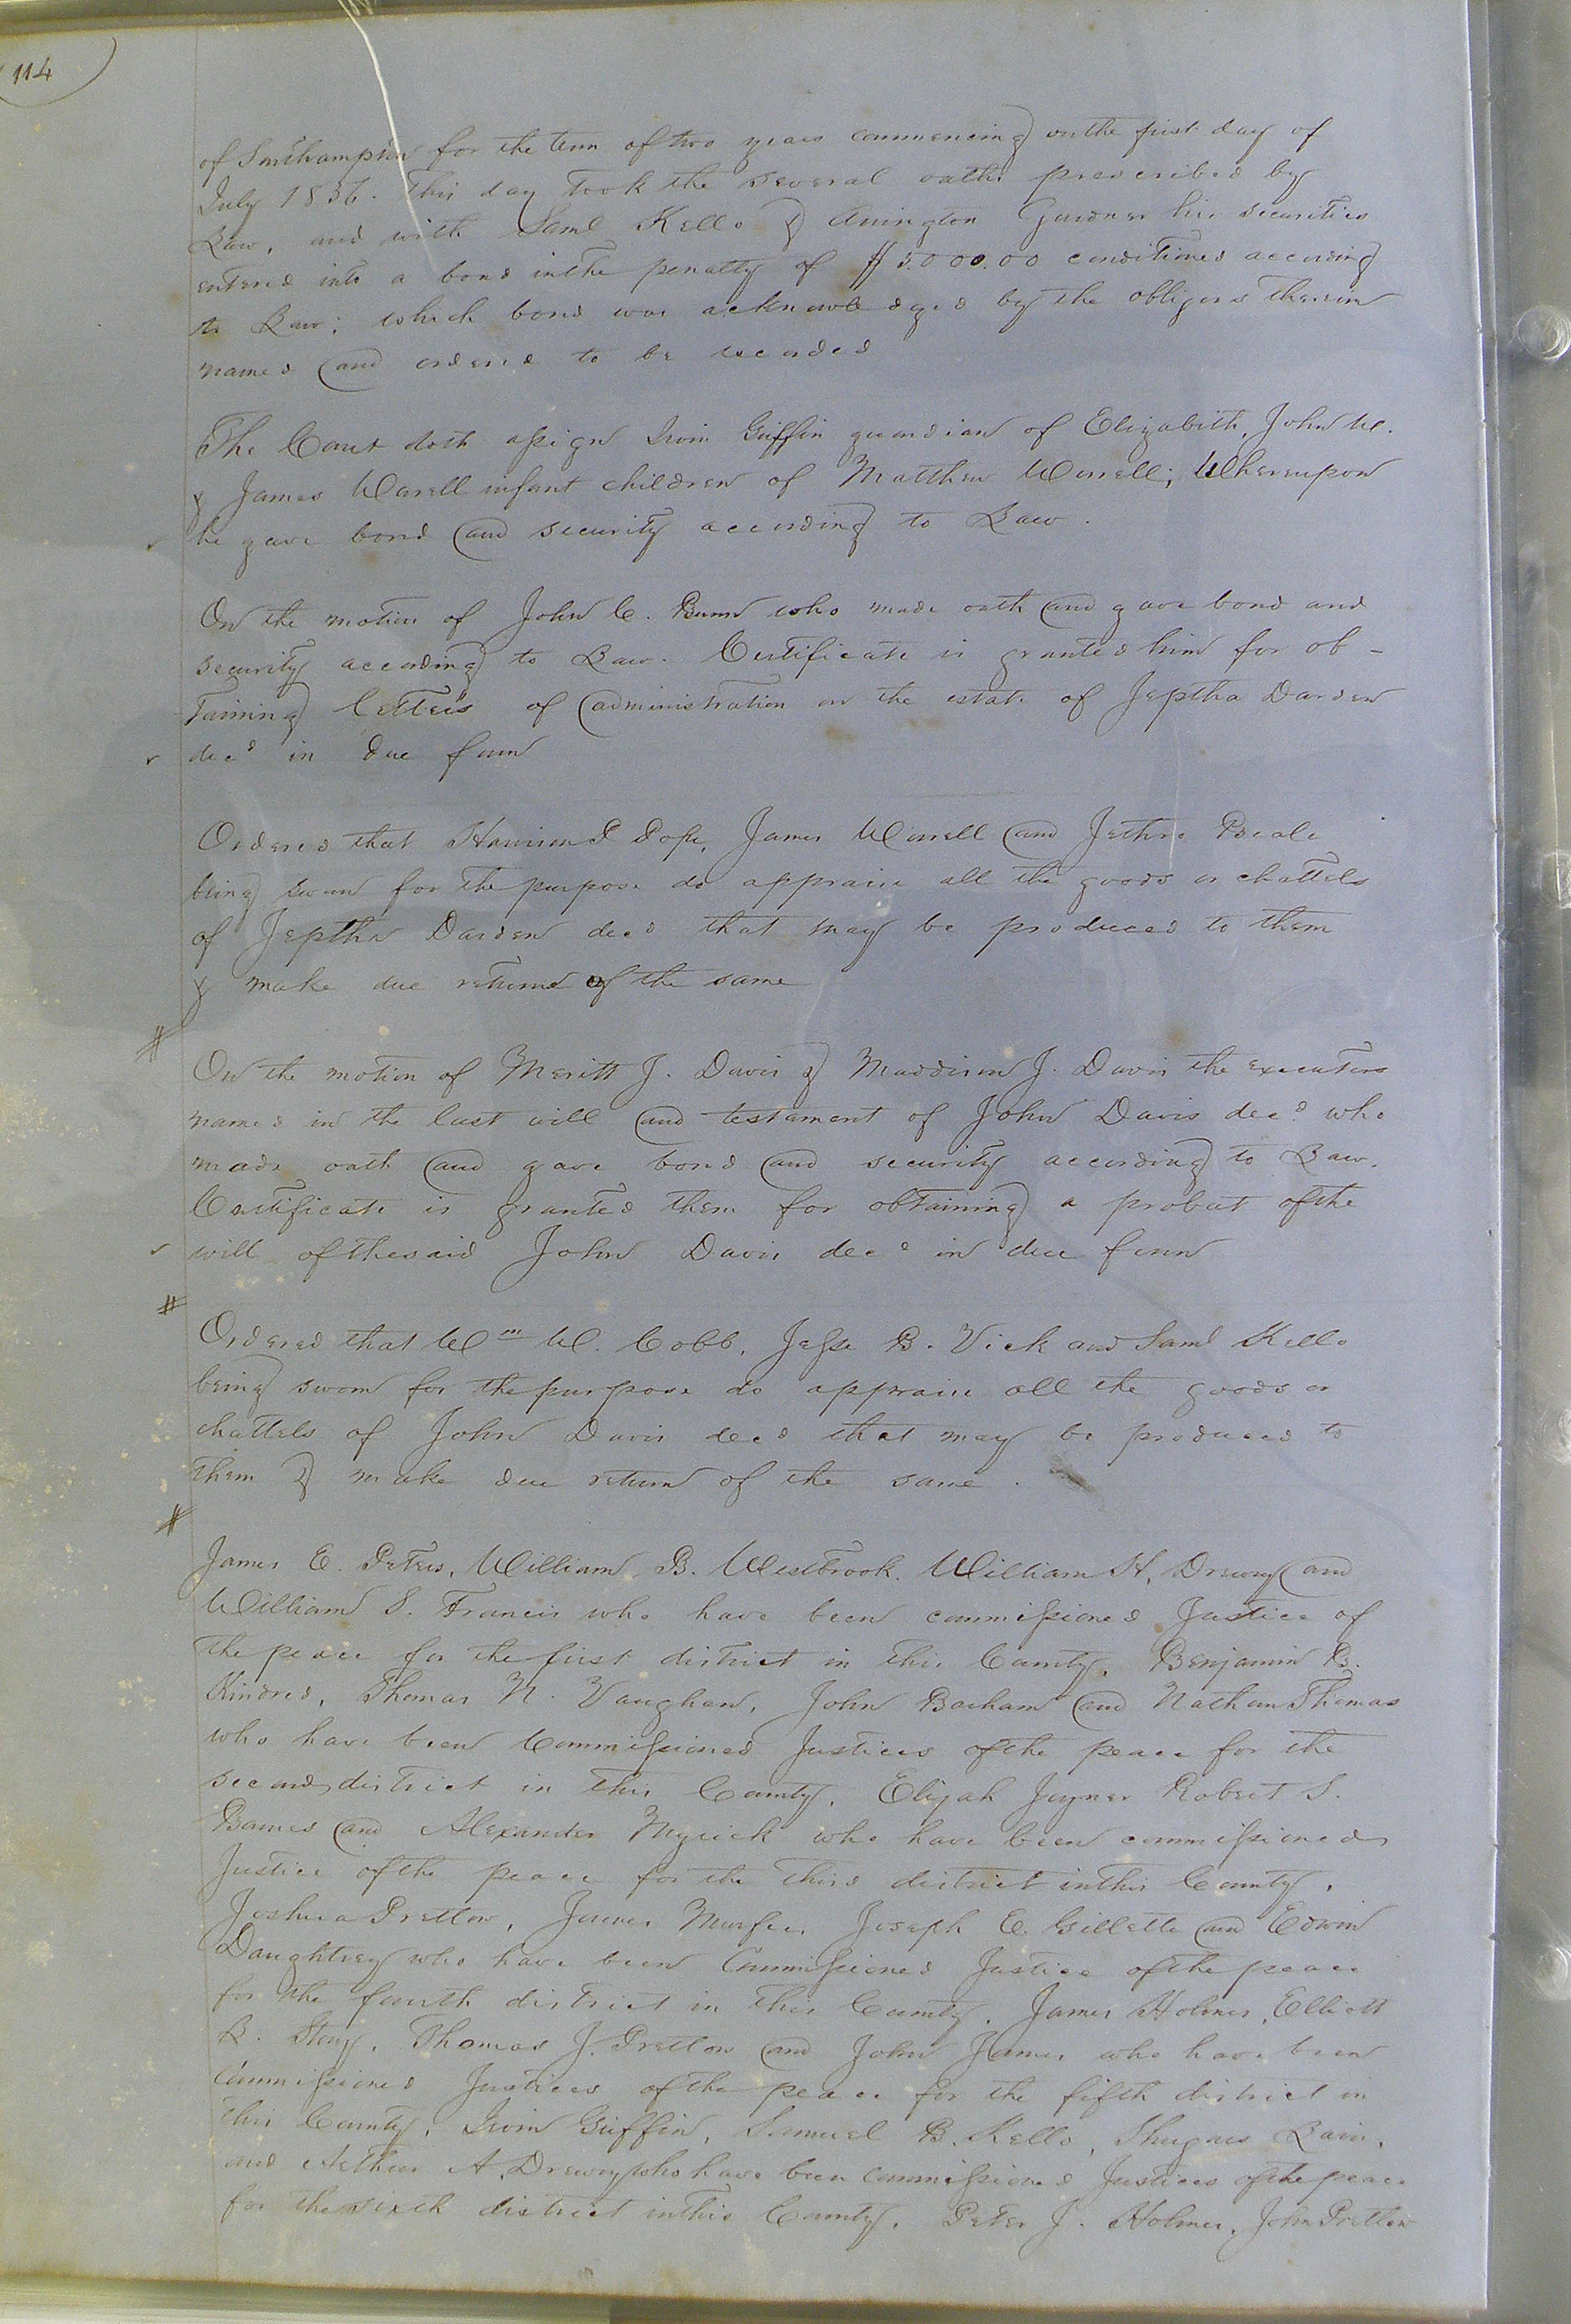 114
of Southampton for the term of two years commencing on the first day of
July 1856. This day took the several oaths prescribed by
Law, and with Saml Kello & Arrington Gardner his securities
entered into a bond in the penalty of $5000.00 conditioned according
to Law; which bond was acknowledged by the obligors therein
named and ordered to be recorded
The Court doth assign Irvin Griffin guardian of Elizabeth, John W.
& James Worrell infant children of Matthew Worrell; Whereupon
he gave bond and security according to Law.
On the motion of John C. Bunn who made oath and gave bond and
security according to Law. Certificate is granted him for ob-
taining letters of administration on the estate of Jeptha Darden
decd in due form
Ordered that Harrison P Pope, James Worrell and Jethro Beale
being sworn for the purpose do appraise all the goods or chattels
of Jeptha Darden decd that may be produced to them
& make due return of the same
#
On the motion of Meritt J. Davis & Maddison J. Davis the executors
named in the last will and testament of John Davis decd who
made oath and gave bond and security according to Law.
Certificate is granted them for obtaining a probat of the
will of the said John Davis decd in due form
#
Ordered that Wm W. Cobb, Jesse B. Vick and Saml Kello
being sworn for the purpose do appraise all the goods or
chattels of John Davis decd that may be produced to
them & make due return of the same.
#
James E. Peters, William B. Westbrook. William H. Drewry and
William S. Francis who have been commissioned Justice of
the peace for the first district in this County, Benjamin B.
Kindred, Thomas N. Vaughan, John Barham and Nathan Thomas
who have been Commissioned Justices of the peace for the
second district in this County. Elijah Joyner Robert S.
Barnes and Alexander Myrick who have been commissioned
Justice of the peace for the third district in this County.
Joshua Pretlow, James Murfee, Joseph E. Gillette and Edwin
Daughtrey who have been Commissioned Justice of the peace
for the fourth district in this County. James Holmes, Elliott
L. Story, Thomas J. Pretlow and John James who have been
Commissioned Justices of the peace for the fifth district in
this County. Irvin Griffin, Samuel B. Kello, Shugars Lain,
and Arthur A. Drewry who have been Commissioned Justices of the peace
for the sixth district in this County. Peter J. Holmes, John Pretlow